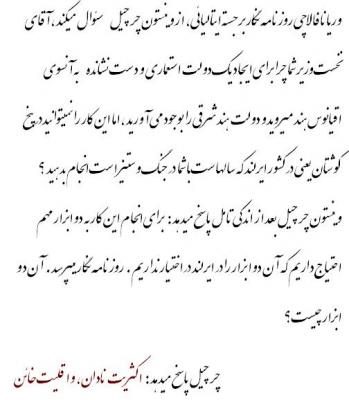 وریانا فالاچی روزنامه نگار برجسته ایتالیائی، از وینستون چرچیل سؤال میکند، آقای
نخست وزیر شما چرا برای ایجاد یک دولت استعماری و دست نشانده به آنسوی
اقیانوس هند میروید و دولت هند شرقی را بوجود می آورید، اما این کار را نمیتوانید در بیخ
گوشتان یعنی در کشور ایرلند که سالهاست با شما در جنگ و ستیز است انجام بدهید؟
وینستون چرچیل بعد از اندکی تامل پاسخ میدهد: برای انجام این کار به دو ابزار مهم
احتیاج داریم که آن دو ابزار را در ایرلند در اختیار نداریم. روزنامه نگار میپرسد. آن دو
ابزار چیست؟
چرچیل پاسخ میدهد: اکثریت نادان، و اقلیت خائن